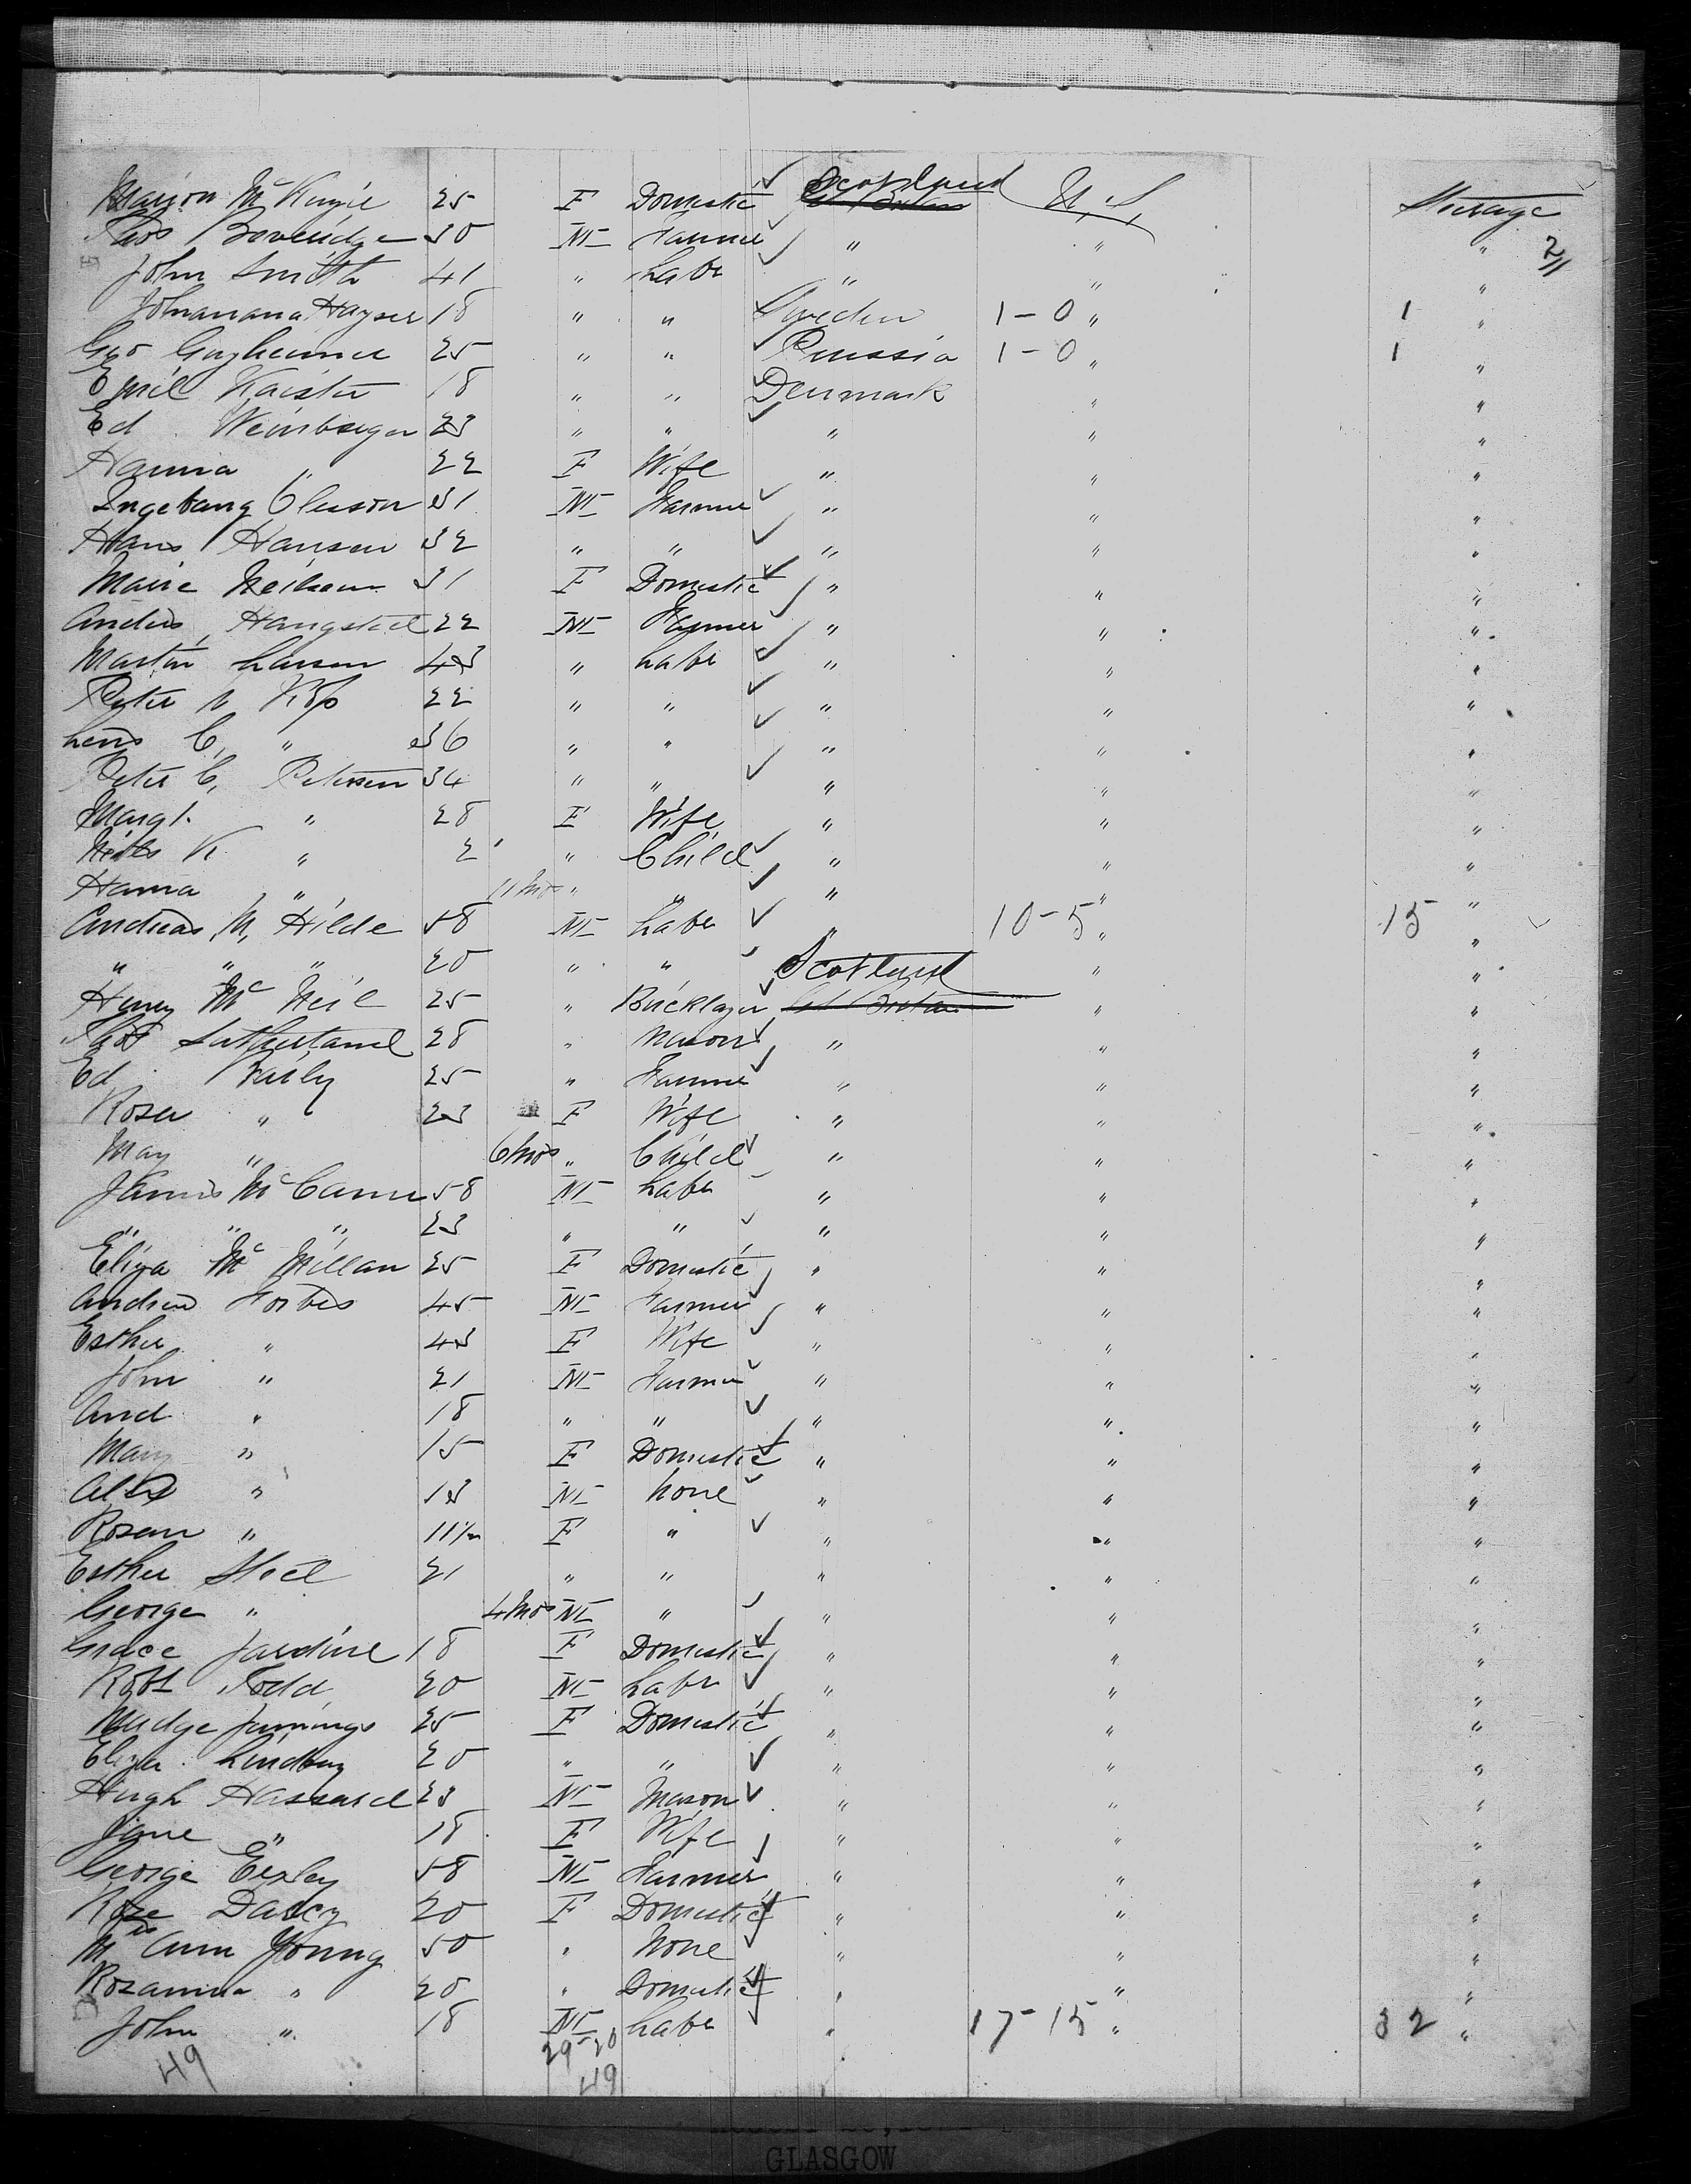 Marion McKenzie 25 F Domestic Scotland Gt Britain U.S. Steerage
Thos Beveridge 30 M Farmer " " " 2/1
John Smith 41 " Labr " " "
Johanana Hayser 18 " " Sweden 1-0 " 1 "
Geo Guyheimer 25 " " Russia 1-0 " 1 "
Emil Kaister 18 " " Denmark " "
Ed Weinberger 23 " " " " "
Hanna " 22 F Wife " " "
Ingebang Oleson 31 M Farmer " " "
Hans Hansen 32 " " " " "
Marie Neilson 31 F Domestic " " "
Anders Haugsted 22 M Farmer " " "
Martin Larsen 43 " Labr " " "
Peter N Kop 22 " " " " "
Lens C, " 36 " " " " "
Peter C, Petersen 34 " " " " "
Margt. " 28 F Wife " " "
Neils K " 2 " Child " " "
Hanna " 11 Mos " " " " "
Andreas M, Hilde 58 M Labr " 10-5 " 15 "
" " " 20 " " Scotland " "
Henry McNeil 25 " Bricklayer Gt Britain " "
Thos Sutherland 28 " Mason " " "
Ed Barley 25 " Farmer " " "
Rosa " 23 F Wife " " "
May " 6 Mos " Child " " "
James McCann 58 M Labr " " "
" " " 23 " " " " "
Eliza McMillan 25 F Domestic " " "
Andrew Forbes 45 M Farmer " " "
Esther " 43 F Wife " " "
John " 21 M Farmer " " "
And " 18 " " " " "
Mary " 15 F Domestic " " "
Alex " 13 M None " " "
Rosan " 11 F " " " "
Esther Steel 21 " " " " "
George " 4 Mos M " " " "
Grace Jardine 18 F Domestic " " "
Robt Todd 20 M Labr " " "
Madge Jennings 25 F Domestic " " "
Eliza Lindsay 20 " " " " "
Hugh Hassard 23 M Mason " " "
Jane " 18 F Wife " " "
George Exley 58 M Farmer " " "
Rose Darcy 20 F Domestic " " "
Mrs Ann Young 50 " None " " "
Rosanna " 20 " Domestic " " "
John " 18 M Labr " 17-15 " 32 "
29-20
49 49
GLASGOW